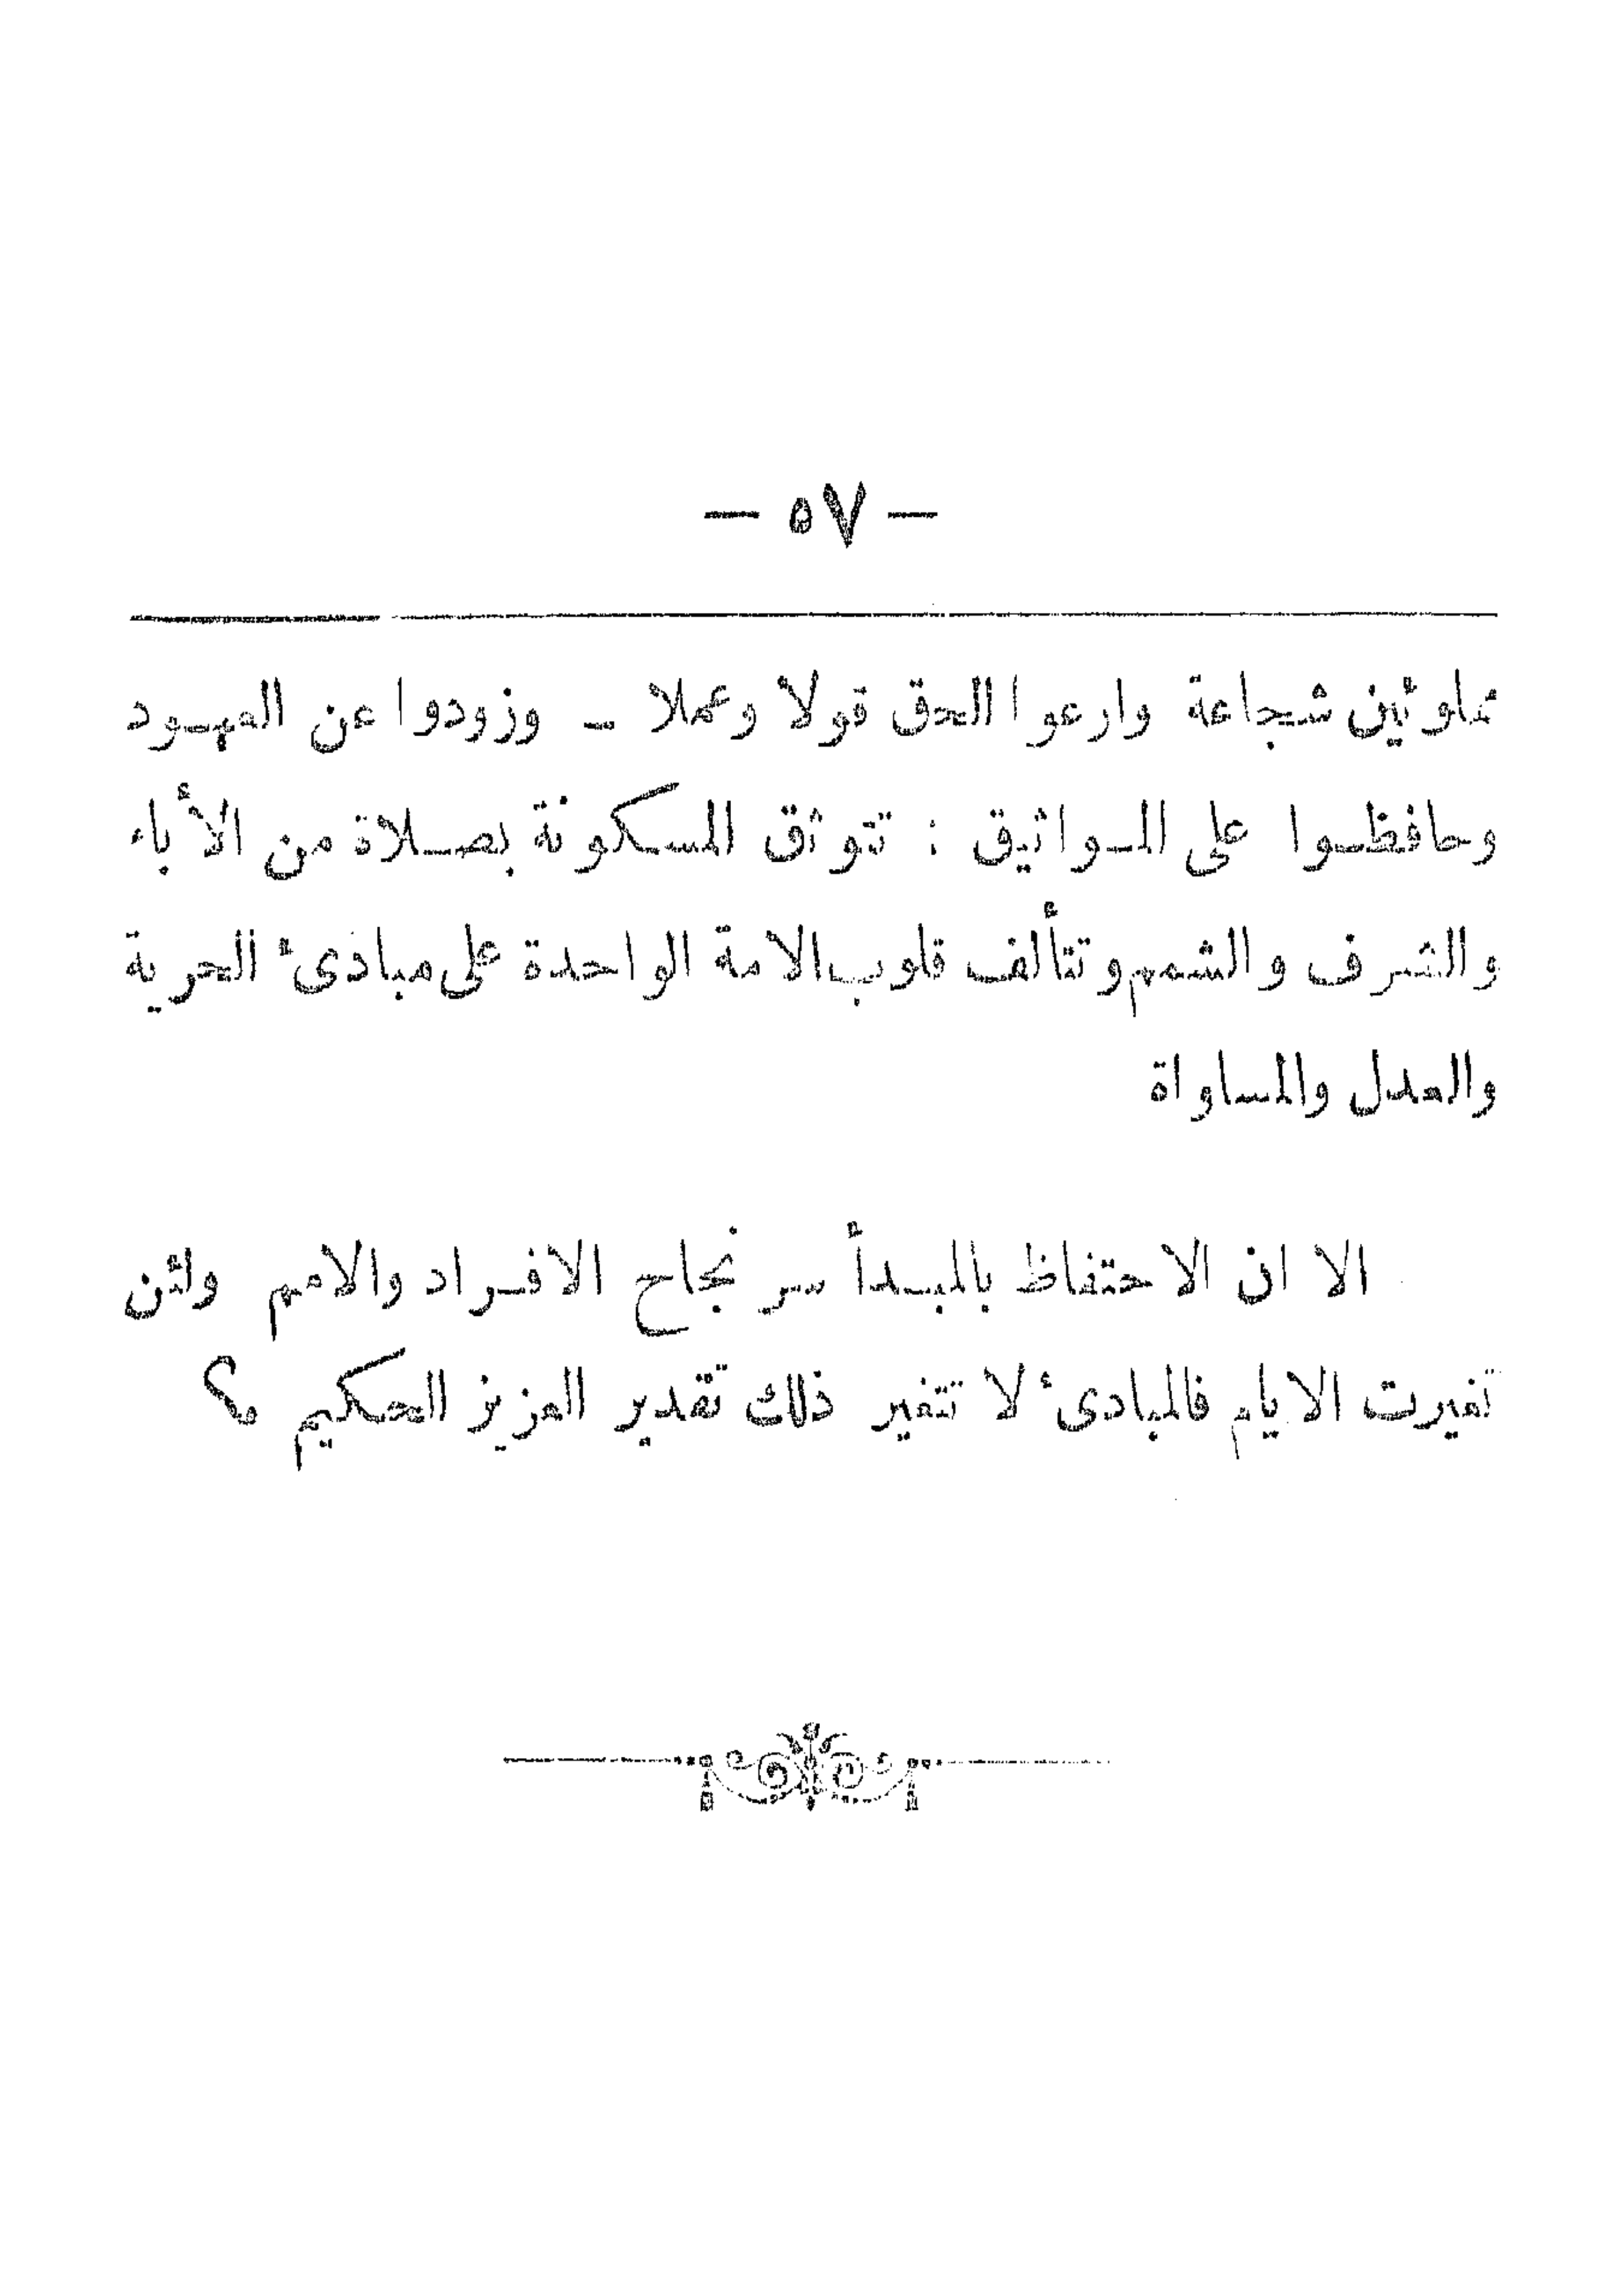 — ٥٧ —
مملوئين شجاعة وارعوا الحق قولا وعملا – وزودوا عن العهود
وحافظوا على المواثيق : تتوثق المسكونة بصلاة من الأباء
والشرف والشمم وتتألف قلوب الامة الواحدة على مبادىء الحرية
والعدل والمساواة
الا ان الاحتفاظ بالمبدأ سر نجاح الافراد والامم ولئن
تغيرت الايام فالمبادىء لا تتغير ذلك تقدير العزيز الحكيم م؟